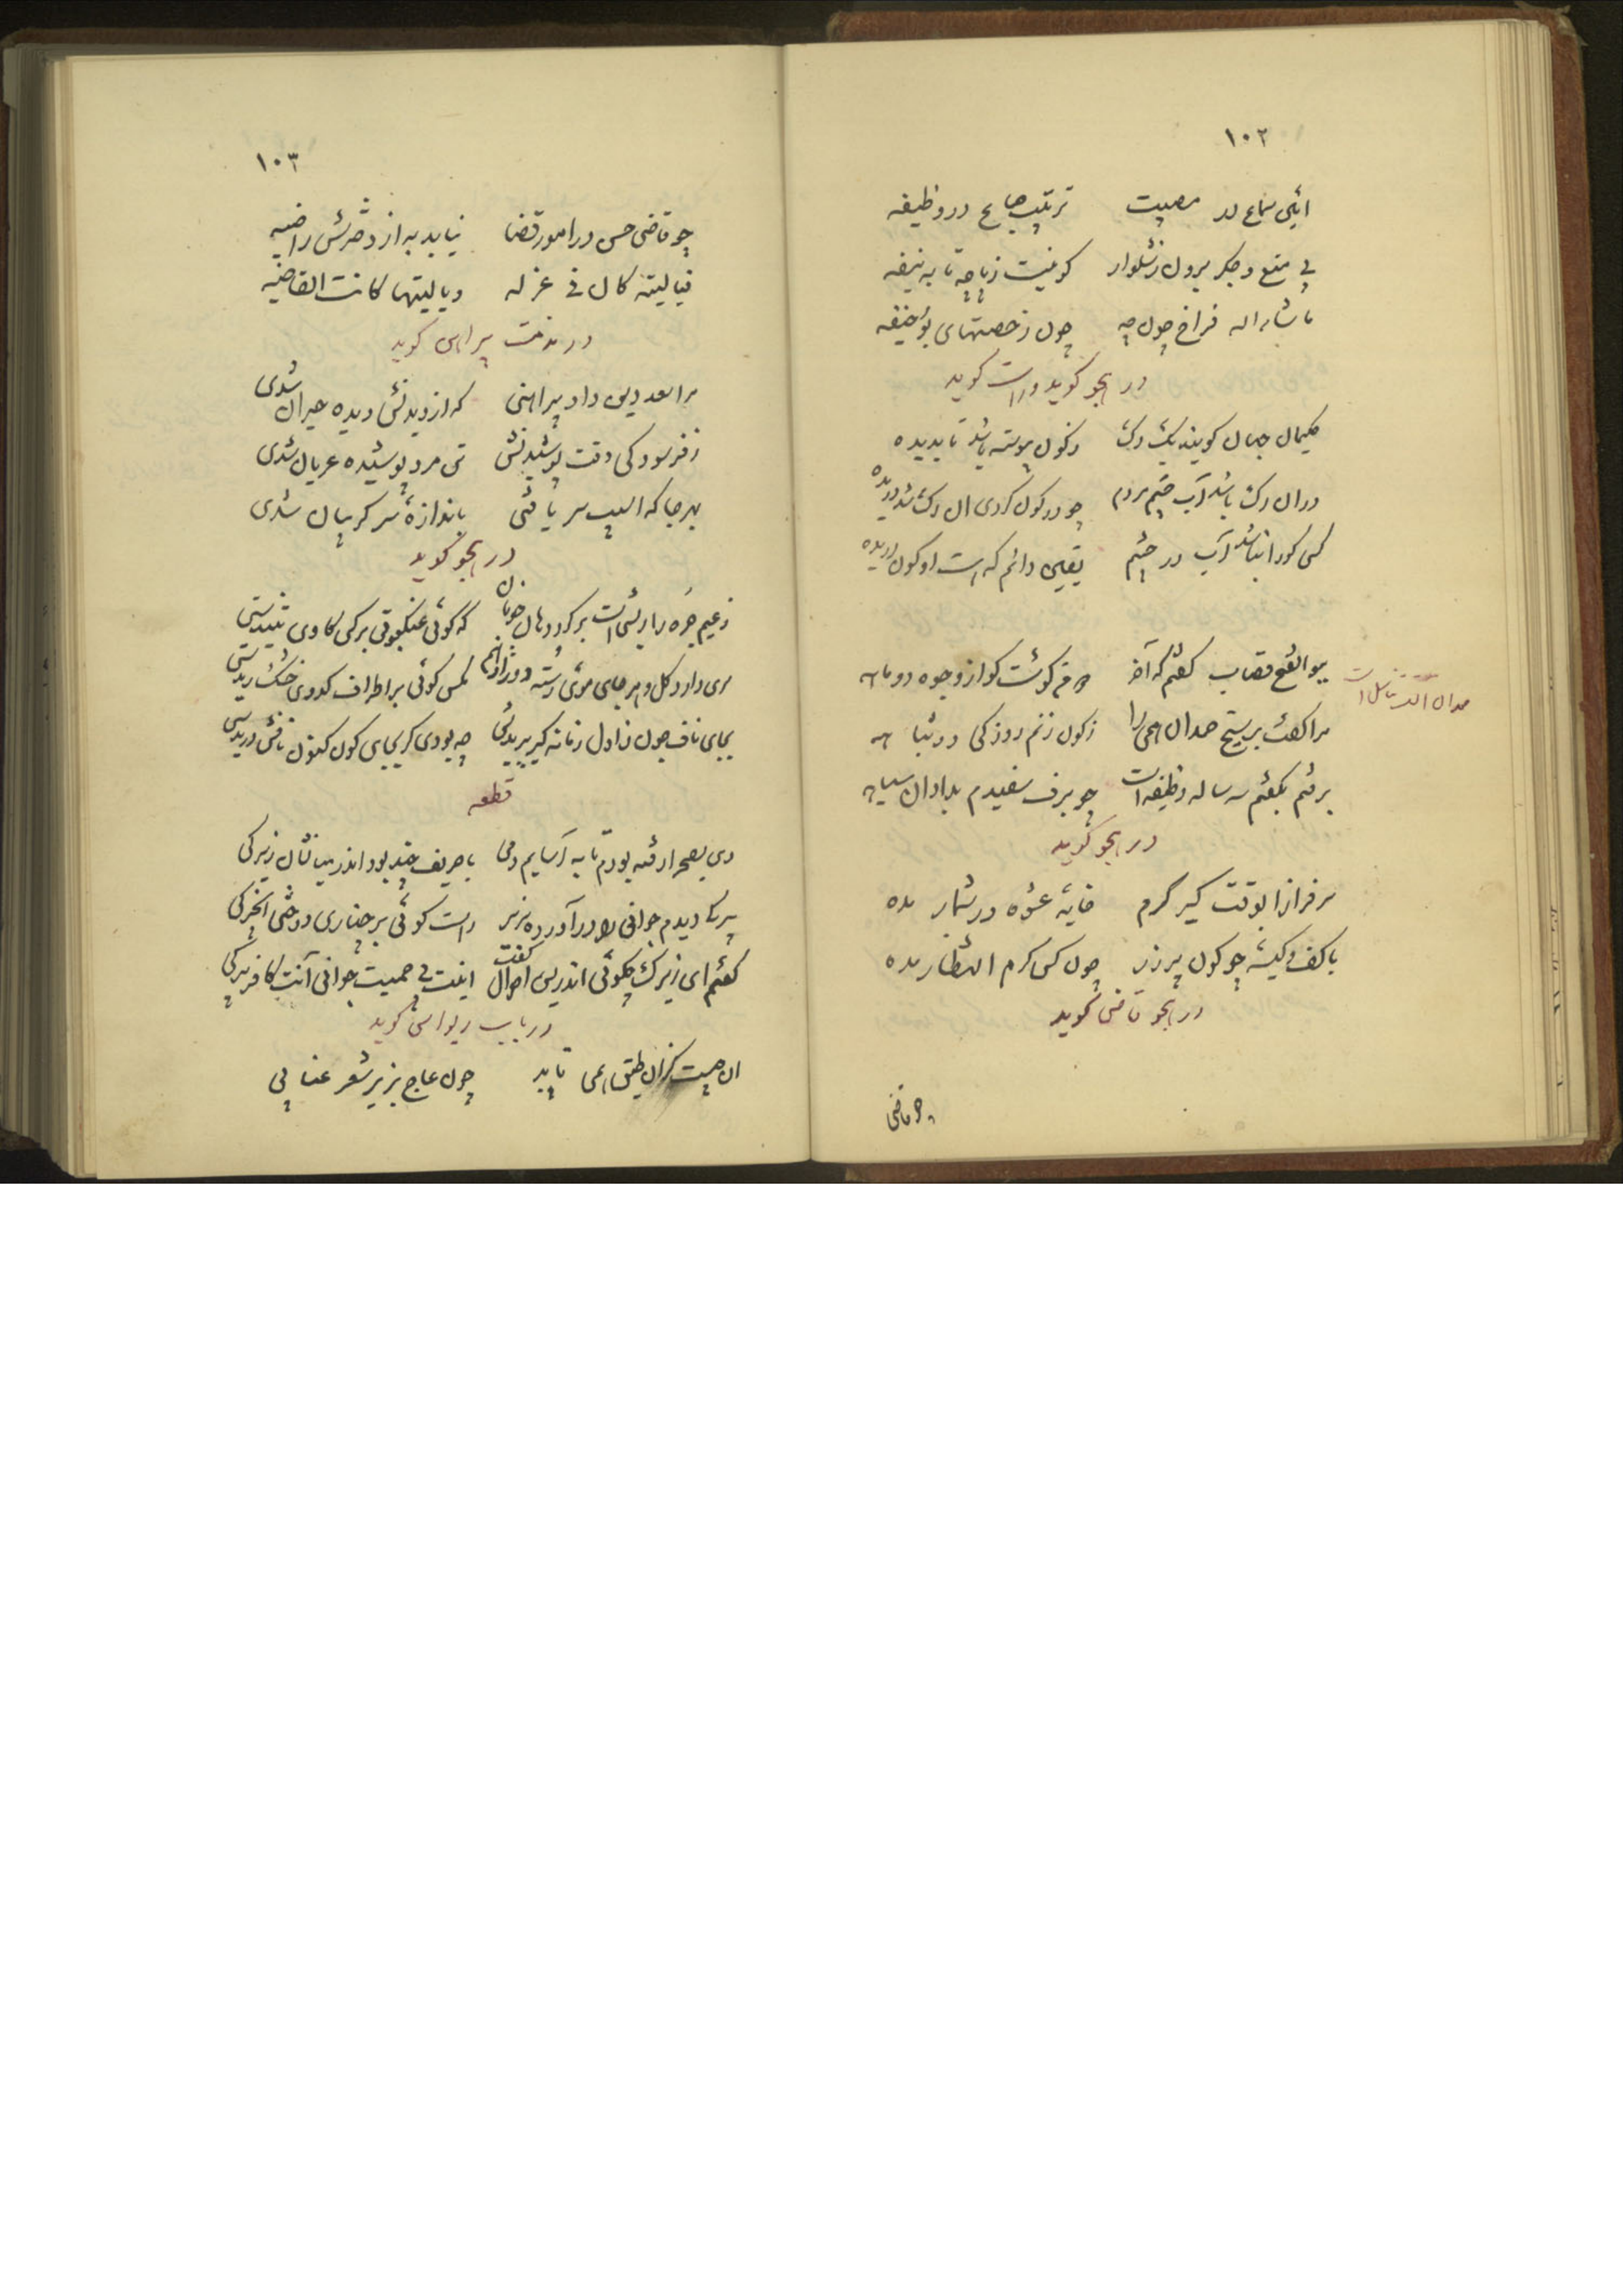 ۱۰۲
مصیبت ترتیب جماع در وظیفه
بی منع و جگر برون ز شلوار کونیست ز پاچه تا به نیفه
ماشاء اله فراخ چون چه چون رخصتهای بوحنیفه
در هجو کوید و راست کوید
حکیمان جهان کویند یک رک ز کون پیوسته باشد تا بدیده
در ان رک باشد آب چشم مردم چو در کون کردی ان رک شد دریده
کسی کورا نباشد آب در چشم یقین دانم که هست او کون دریده
بوالفتح قصاب کفتم که آخر کوشت کو از وجوه دو ماهه
مرا کفت زکون زنم روزکی در
برفتم بکفتم سه ساله وظیفه است چو برف سفیدم بدادان سیاهه
در هجو کوید
سرفرازا بوقت کیر کرم خایهٔ عشوه در شمار مده
با کف و کیسهٔ چو کون پرزر چون کس کرم انتظار مده
در هجو قاضی کوید
چو قاضی
۱۰۳
چو قاضی حسن در امور قضا نیابد به از دخترش راضیه
فیا لیته کان فی عزله ویا لیتها کانت القاضیه
در مذمت پیراهن کوید
مرا سعد دین داد پیراهنی که از دیدنش دیده حیران شدی
ز فرسودکی وقت پوشیدنش تن مرد پوشیده عریان شدی
بهر جا که اسیب سر یافتی باندازهٔ سر کریبان شدی
در هجو کوید
زعیم خره را ریشی است بر کرد دهان که کوئی عنکبوتی بر کس کاوی تنیدستی
سری دارد کل و هر جای موی رسته کمس کوئی بر اطراف کدوی خشک ریدستی
بجای ناف چون زاول زنانه کیر ببریدش چه بودی کر بجای کون کنون نافش دریدستی
قطعه
دی بصحرا رفته بودم تا به آسایم دمی با حریف چند بود اندر میانشان زیرکی
پیرکی دیدم جوانی را در آورده بزیر راست کوئی بر چناری دوختی انجیرکی
کفتم ای زیرک چکوئی اندرین احوال کفت اینت بی حمیت جوانی آنت کافر پیرکی
در باب ریواس کوید
ان چیست کزان طبق همی تابد چون عاج بزیر شعر عنابی